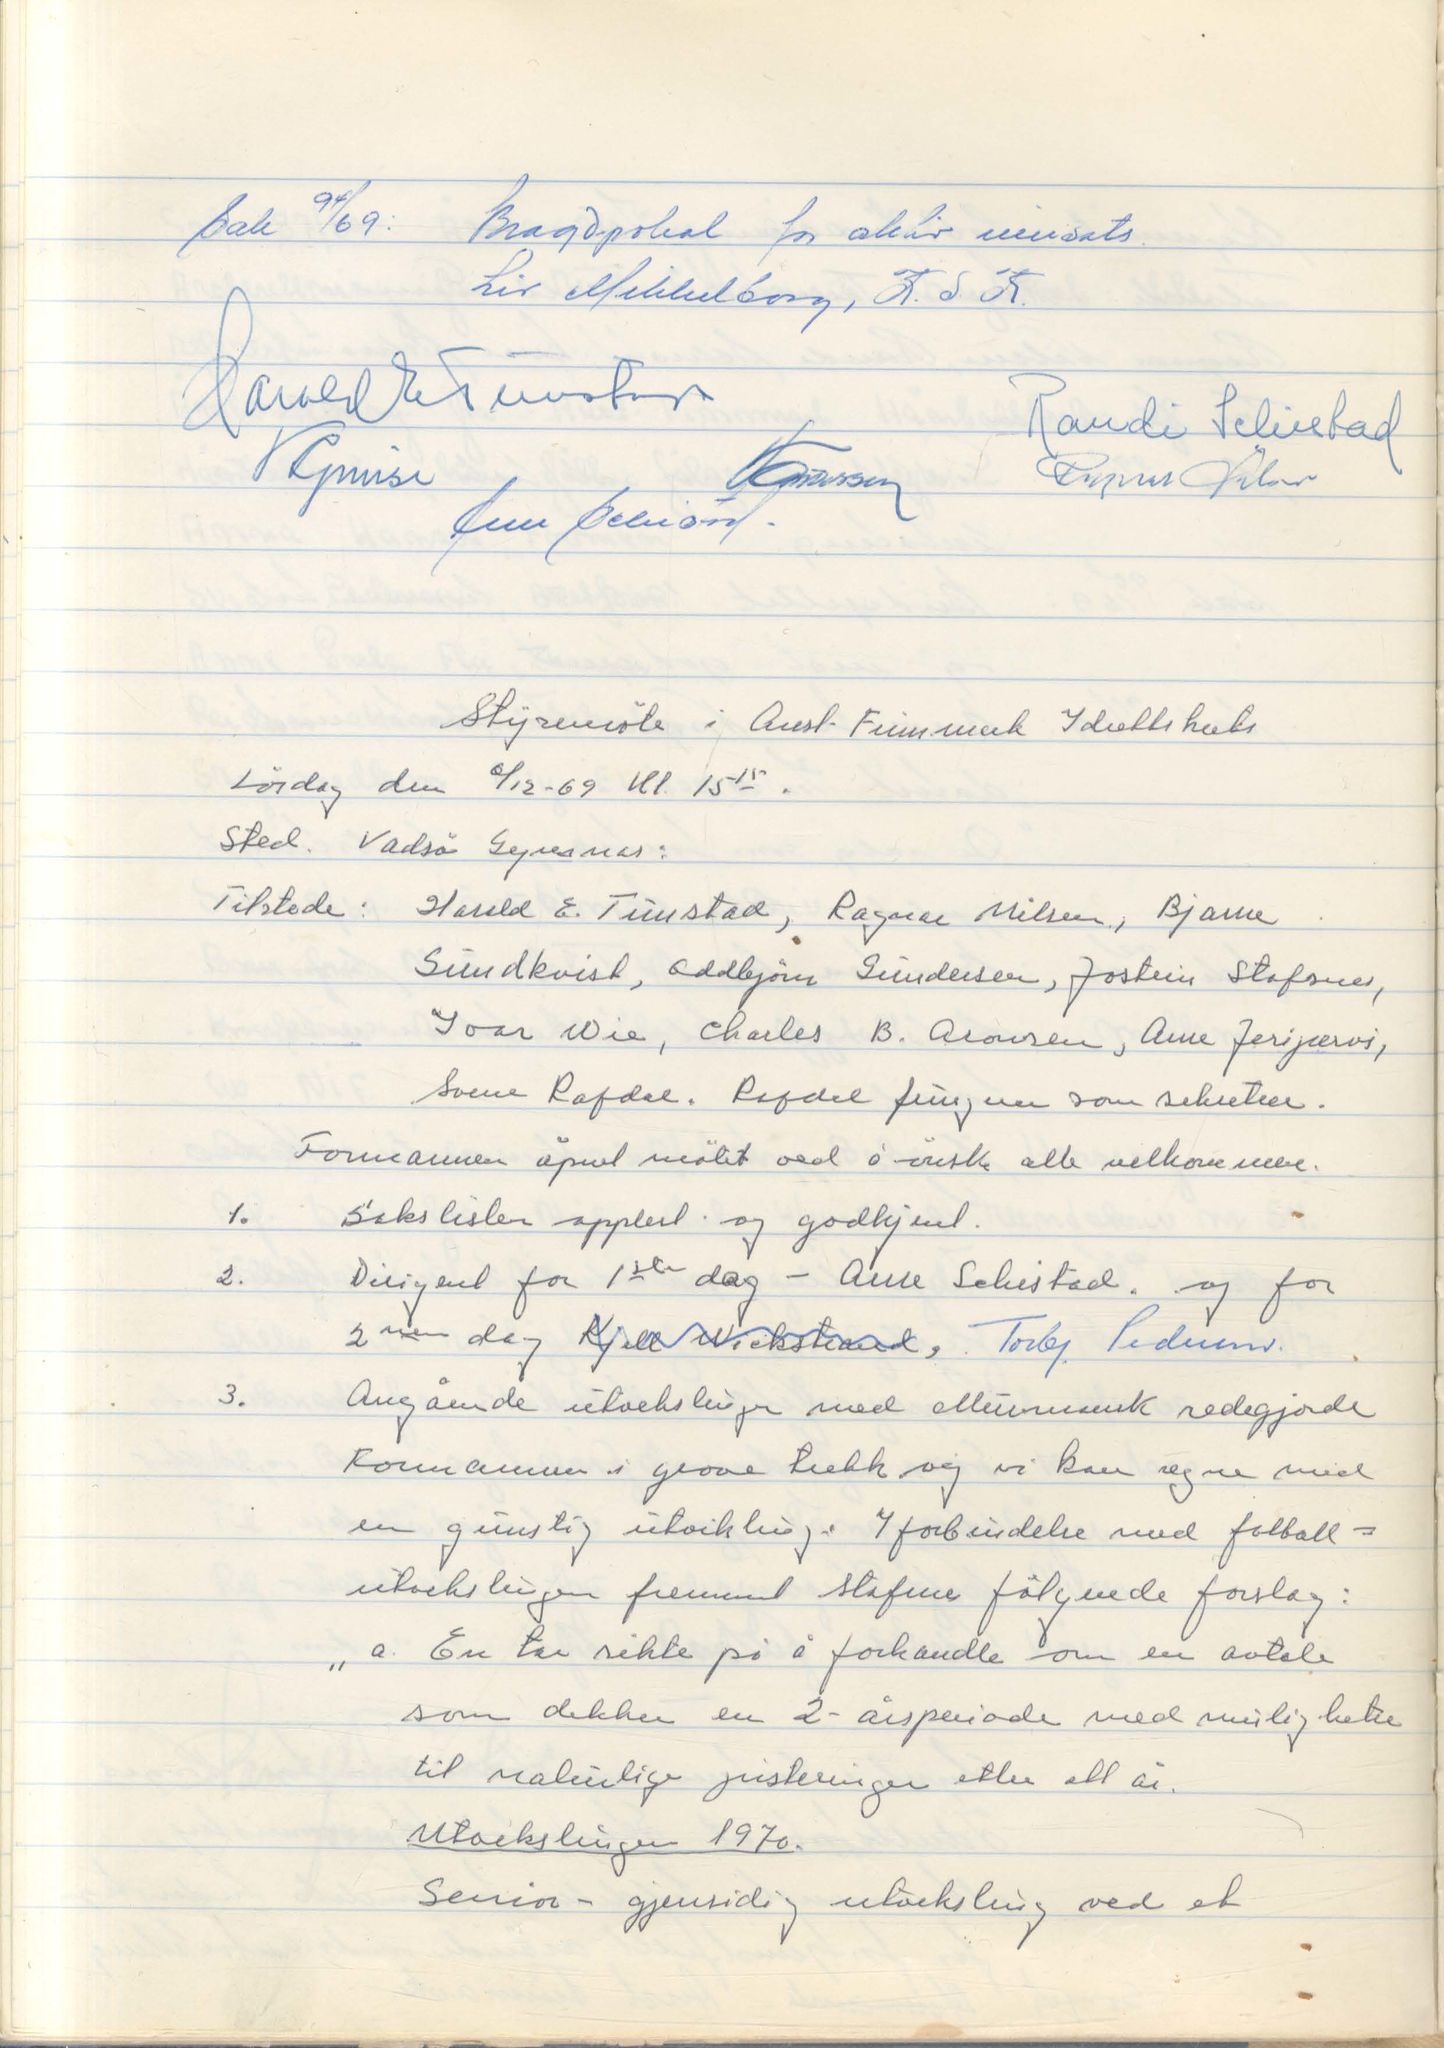 Sak 94/69: Bragdpokal for aktiv innsats.
Liv Mikkelborg,
Harald E Tunstad
Randi Schistad
Styremöte i Aust-Finnmark Idrettskrets
Lördag den 6/12-69 kl. 15 15.
Sted. Vadsö Gymnas:
Tilstede: Harald E. Tunstad, Ragnar Nilsen, Bjarne
Sundkvist, Oddbjörn Gundersen, Jostein Stafsnes,
Ivar Wie, Charles B. Aronsen, Arne Jerijærvi,
Svene Rafdal. Rafdal fungerer som sekretær.
Formannen åpnet mötet ved å önske alle velkommen.
1. Sakslisten opplest og godkjent.
2. Dirigent for 1ste dag - Arne Schistad. og for
2nen dag Kjell Wickstrand, Torbj. Pedersen.
3. Angående utvekslingen med Murmansk redegjorde
Formannen i grove trekk og vi kan regne med
en gunstig utvikling. I forbindelse med fotball-
utvekslingen fremmet Stafsnes fölgende forslag:
„a. En tar sikte på å forhandle om en avtale
som dekker en 2-årsperiode med muligheter
til naturlige justeringer etter ett år.
Utvekslingen 1970.
Senior - gjensidig utveksling ved et